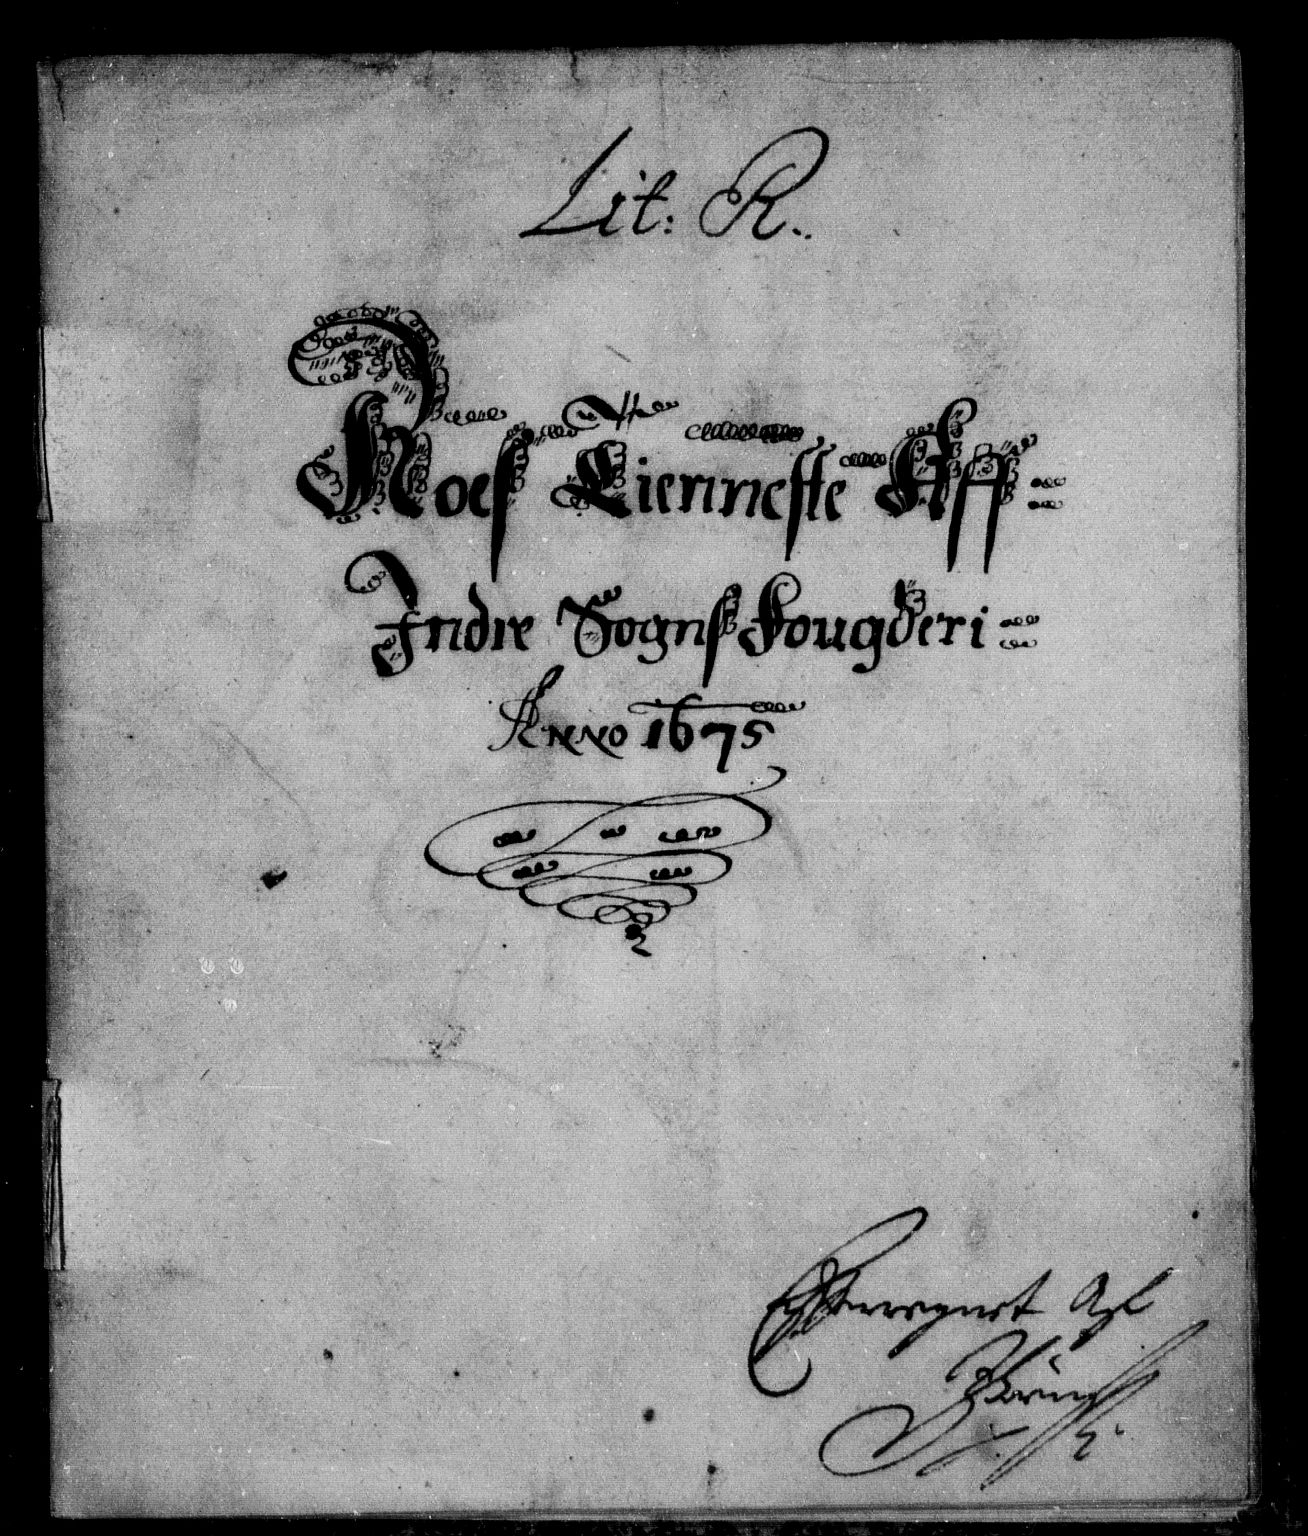 Lit: R.
Roes Tienneste Aff
Indre Sogns Fougderi
Anno 1675
Efterregnet